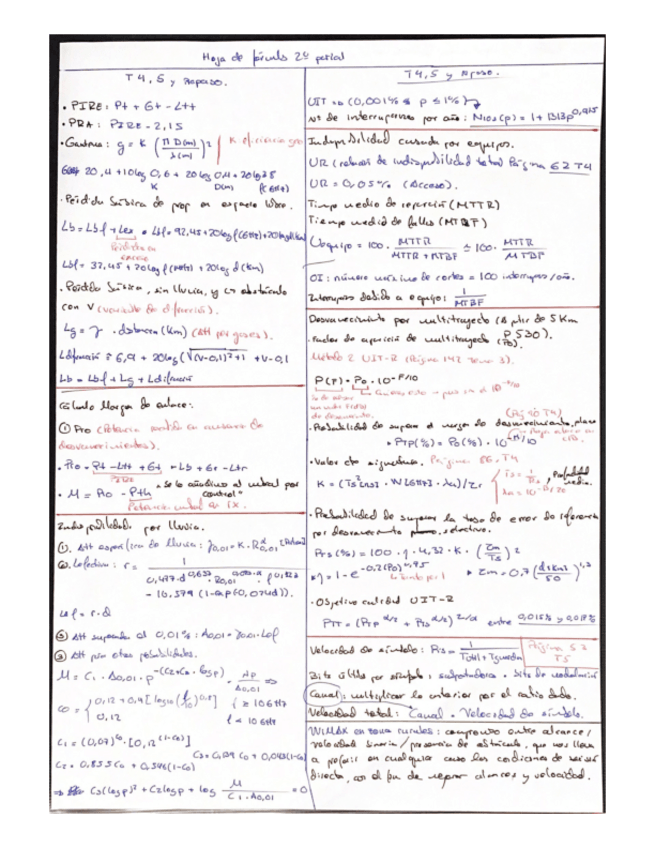 Hoja de fórmulas 2º parcial
T4,5 y Repaso.
• PIRE: Pt + Gt - Ltt
• PRA: PIRE - 2,15
• Ganancia: g = K (π D(m) / λ(m))² K eficiencia
20,4 + 10 log 0,6 + 20 log D + 20 log f
K D(m) f(GHz)
• Pérdida básica de prop en espacio libre.
Lb = Lbf + Lex Lbf = 92,45 + 20 log f(GHz) + 20 log d(km)
Pérdida en exceso
Lbf = 32,45 + 20 log f(MHz) + 20 log d(km)
• Pérdida básica, sin lluvia, y con obstáculo
con V (variable de difracción).
Lg = γ · distancia (km) (Att por gases).
Ldifracción = 6,9 + 20 log (√((V-0,1)²+1) + V-0,1
Lb = Lbf + Lg + Ldifracción
Cálculo Margen de enlace:
① Pro (Potencia recibida en ausencia de
desvanecimientos).
• Pro = Pt - Ltt + Gt - Lb + Gr - Ltr
PIRE
• M = Pro - Pth "Se lo añadimos al umbral por control"
Potencia umbral en rx.
Indisponibilidad por lluvia.
①. Att específica de lluvia: γ0,01 = K · R0,01^α
②. Lefectiva: r = 1 / 0,477·d^0,633 · R0,01^0,073·α · f^0,123
- 10,579 (1-exp(-0,024d)).
Lef = r · d
③ Att superada al 0,01%: A0,01 = γ0,01 · Lef
③ Att para otras probabilidades.
M = C1 · A0,01 · p^-(C2+C3·log p) → Ap / A0,01 ⇒
C0 = { 0,12 + 0,4 [log10 (f/10)^0,8] f ≥ 10 GHz
0,12 f < 10 GHz
C1 = (0,07)^C0 · [0,12^(1-C0)]
C2 = 0,855 C0 + 0,546 (1-C0) C3 = 0,139 C0 + 0,043 (1-C0)
⇒ C3 (log p)² + C2 log p + log M / C1 · A0,01 = 0
T4,5 y repaso.
UIT ⇒ (0,001% ≤ p ≤ 1%)
Nº de interrupciones por año: N10s(p) = 1 + 1313p^0,945
Indisponibilidad causada por equipos.
UR (relación de indisponibilidad total) Página 62 T4
UR = 0,05% (Acceso).
Tiempo medio de reparación (MTTR)
Tiempo medio de fallos (MTBF)
Uequipo = 100 · MTTR / MTTR + MTBF ≈ 100 · MTTR / MTBF
OI: número máximo de cortes = 100 interrupc/año.
Interrupción debida a equipo: 1 / MTBF
Desvanecimiento por multitrayecto (A partir de 5 Km
· factor de aparición de multitrayecto (P0). P530).
Método 2 UIT-R (Página 142 Tema 3).
P(F) = P0 · 10^-F/10
• Probabilidad de superar el margen de desvanecimiento, plano (Pág 90 T4)
* PTP(%) = P0(%) · 10^-M/10
• Valor cte signatura. Página 86. T4
K = (Ts² · W(GHz) · λa) / Tr { Ts = 1/Rs , Profundidad media.
λa = 10^-B/20
• Probabilidad de superar la tasa de error de referencia
por desvanecimiento selectivo.
PTS(%) = 100 · η · 4,32 · K · (τm / Ts)²
* η = 1 - e^-0,2(P0)^0,75 * τm = 0,7 (d(km) / 50)^1,3
↳ Tanto por 1
• Objetivo calidad UIT-R
PTT = (PTP^α/2 + PTS^α/2)^2/α entre
Velocidad de símbolo: Rs = 1 / Tútil + Tguarda Página 53 T5
Bits útiles por símbolo: subportadoras · bits de modulación
Canal: multiplicar lo anterior por el ratio dado.
Velocidad total: Canal · Velocidad de símbolo.
WiMAX en zona rurales: compromiso entre alcance/
velocidad binaria/presencia de obstáculo, que nos lleva
a preferir en cualquier caso las condiciones de visión
directa, con el fin de mejorar alcances y velocidad.